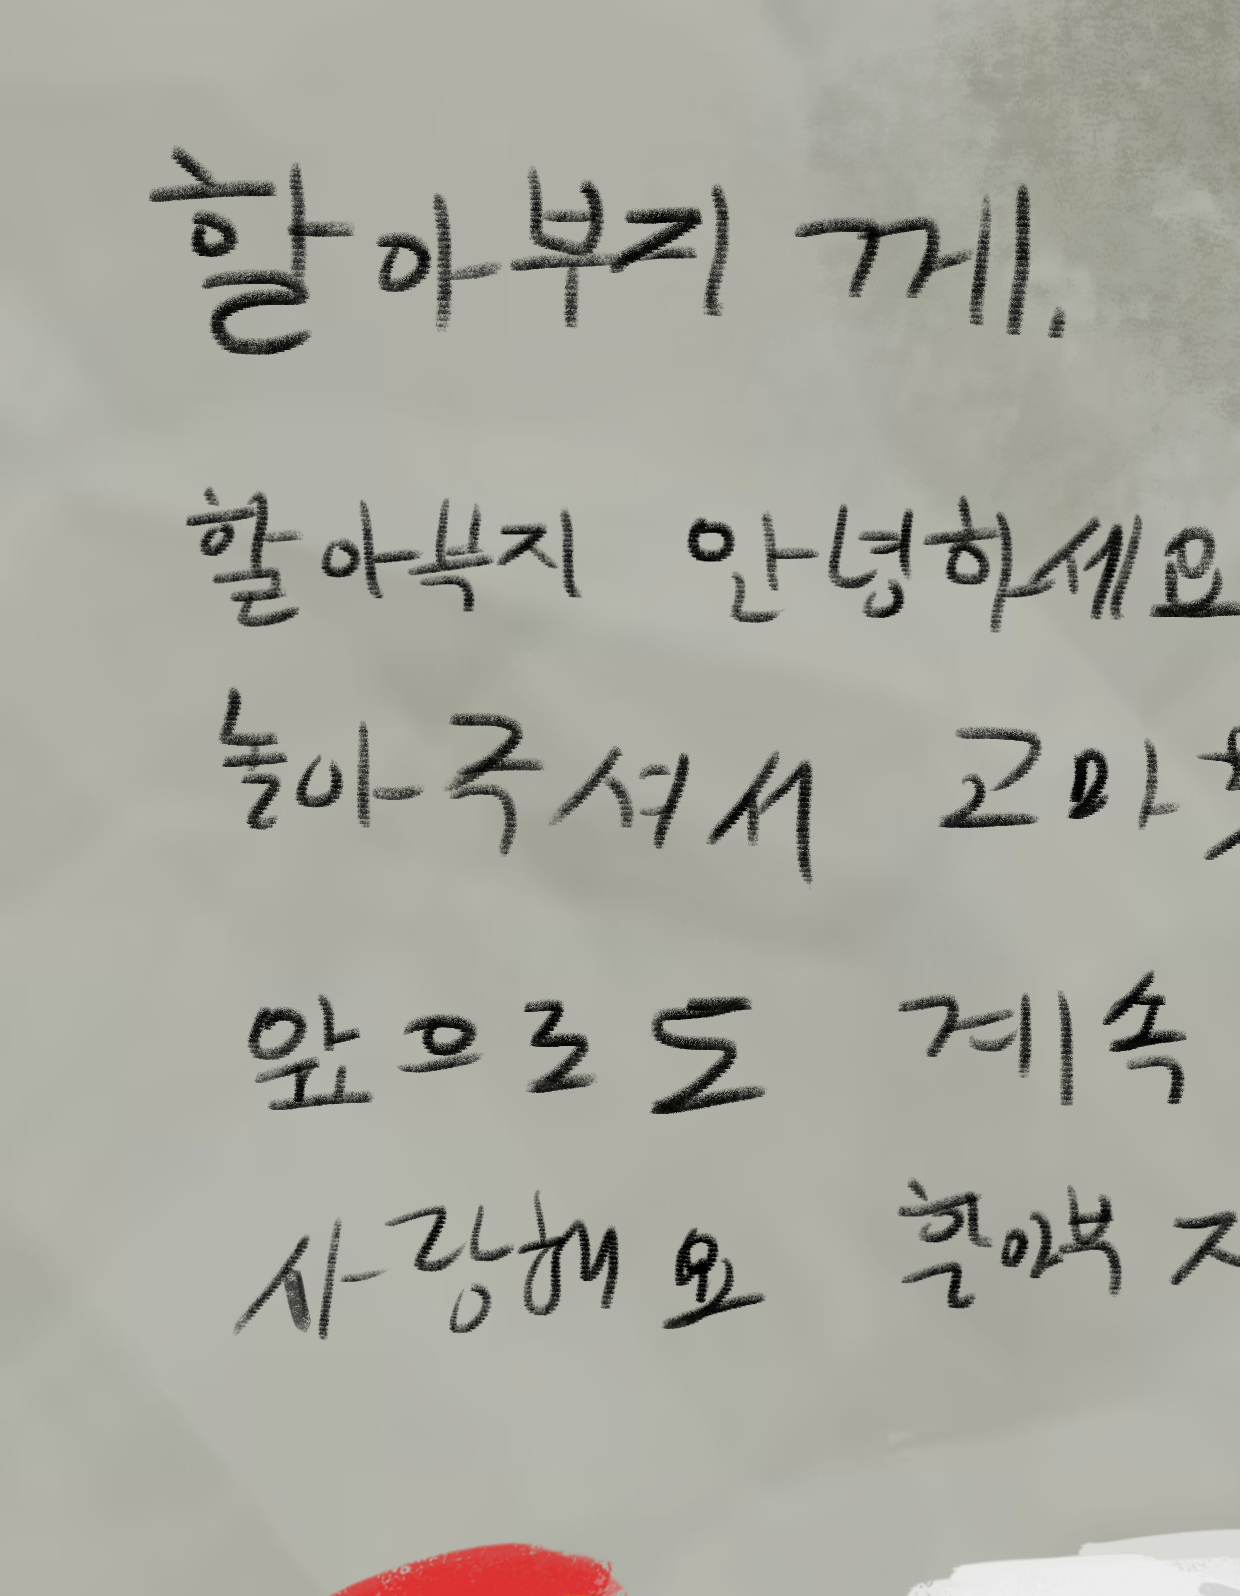 할아부지 께.
할아부지 안녕하세요
놀아주셔서 고마
앞으로도 계속
사랑해요 할아부지